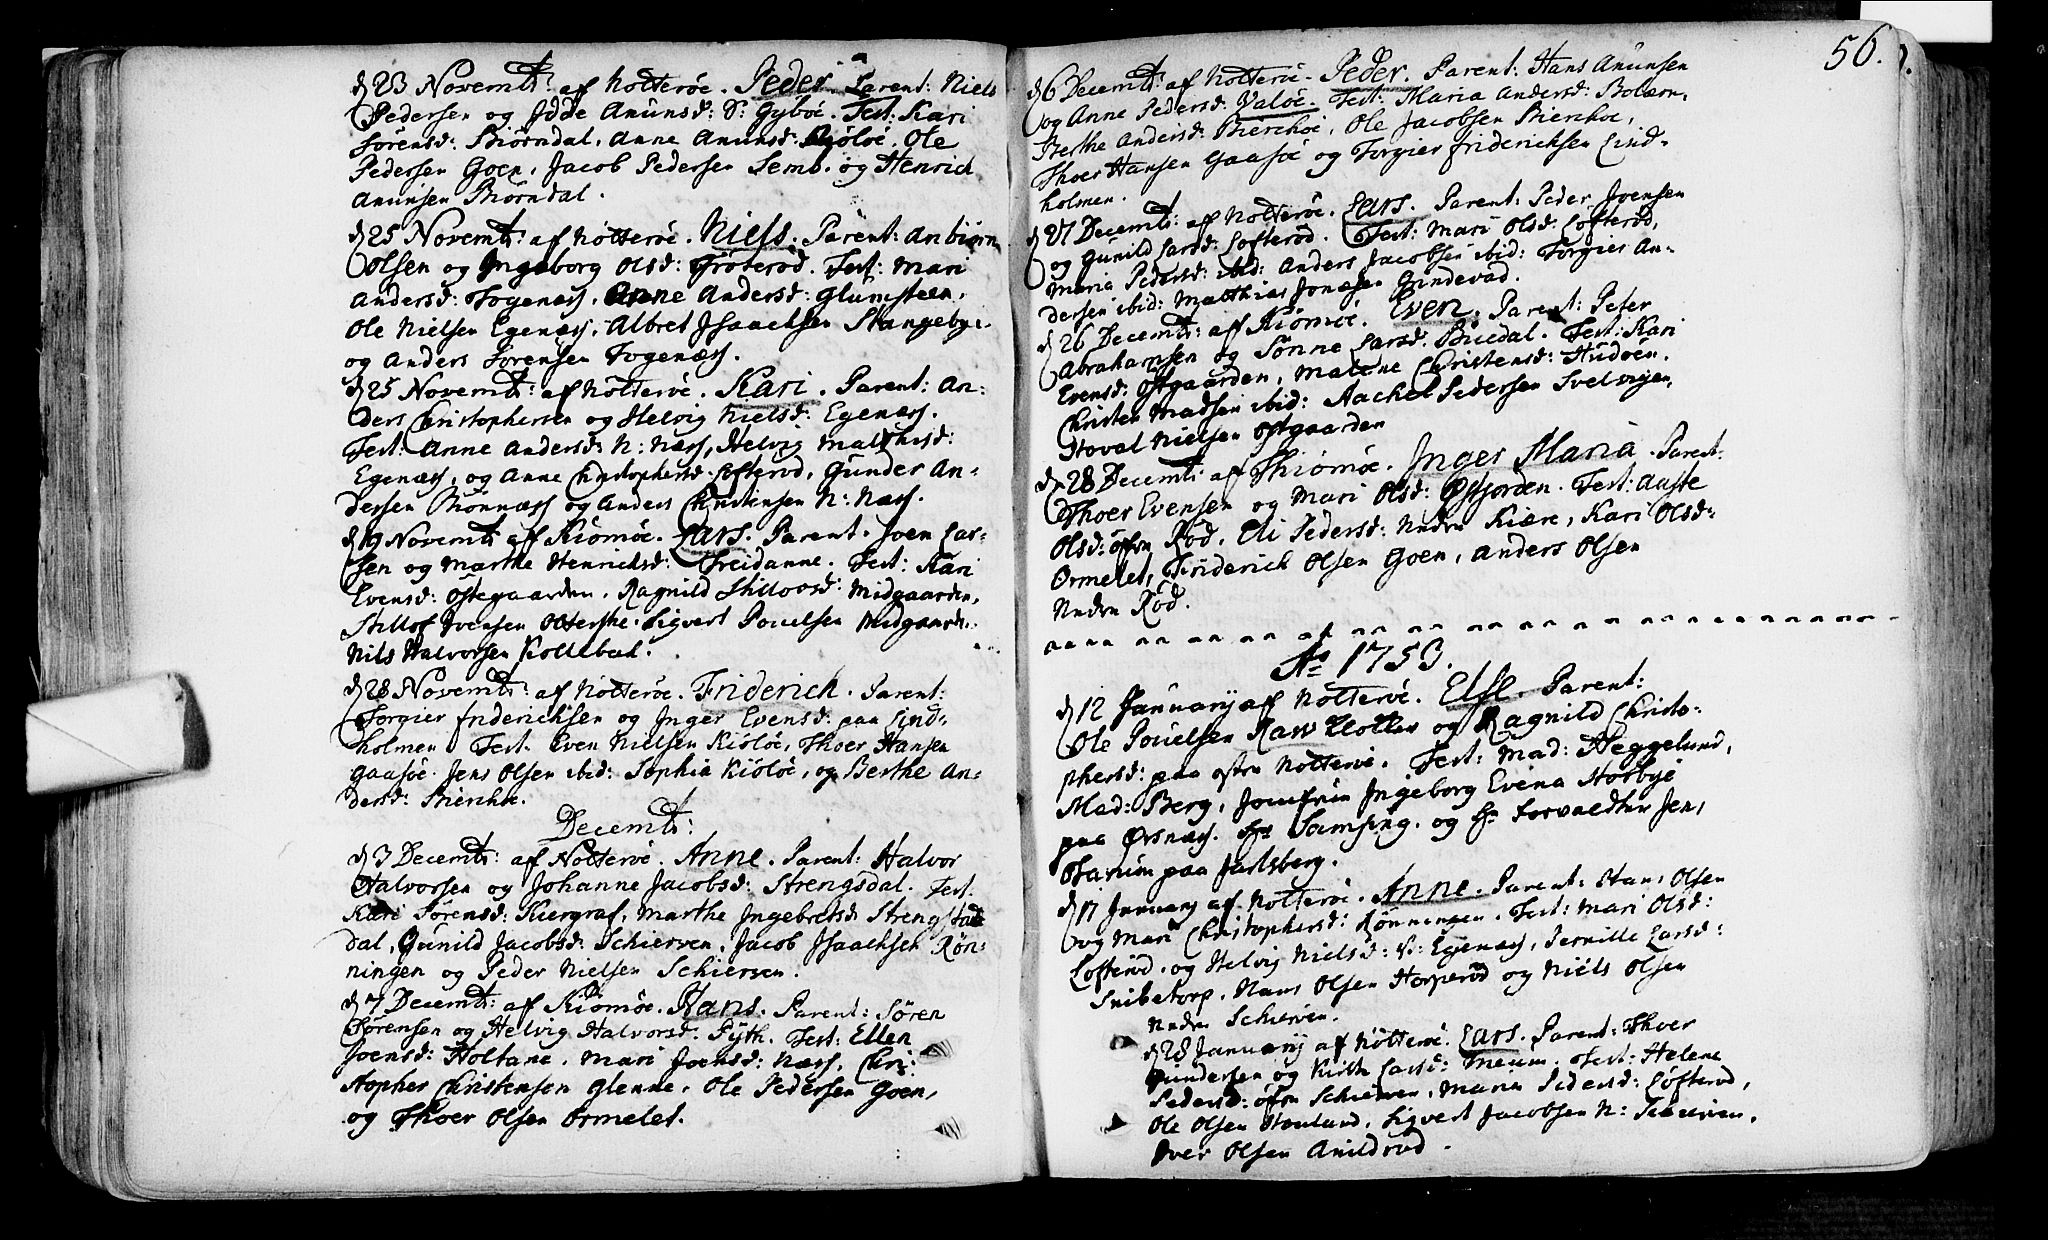 d 23 Novembr: af Nötteröe. Peder. Parent: Niels
Pedersen og Idde Amunsd: S: Gyböe. Test: Kari
Sörensd: Biörndal, Anne Amunsd: Kiölöe, Ole
Pedersen Goen, Jacob Pedersen Semb. og Henrich
Amunsen Biörndal.
d 25 Novembr: af Nötteröe. Niels. Parent: Anbiörn
Olsen og Ingeborg Olsd: Gröteröd. Test: Mari
Andersd: Fogenæss, Anne Andersd: Glumsteen,
Ole Nielsen Egenæss, Albret Isaachsen Stangebye
og Anders Sörensen Fogenæss.
d 25 Novembr: af Nötteröe. Kari. Parent: An-
ders Christophersen og Helvig Nielsd: Egenæss.
Test: Anne Andersd: N: Næss, Helvig Mathisd:
Egenæss, og Anne Christophersd: Lofteröd, Gunder An-
dersen Bönnæss og Anders Christensen N: Næss.
d 19 Novembr af Kiömöe. Lars. Parent. Joen Lar-
sen og Marthe Henrichsd: Treidanne. Test: Kari
Evensd: Östegaarden. Ragnild Stillovsd: Midgaarden,
Stillof Ivensen Olterthe. Sigvert Pouelsen Midgaard.
Nils Halvorsen Kollebed.
d 28 Novembr: af Nötteröe. Friderich. Parent:
Torgier Friderichsen og Inger Evensd: paa Lind-
holmen. Test. Even Nielsen Kiölöe, Thoer Hansen
Gaasöe. Jens Olsen ibid: Sophia Kiölöe, og Berthe An-
dersd: Bierchöe.
Decembr:
d 3 Decembr: af Nötteröe. Anne. Parent: Halvor
Halvorsen og Johanne Jacobsd: Strengsdal. Test.
Kari Sörensd: Kiergraf, Marthe Ingebretsd Streng
dal, Gunild Jacobsd: Schierven, Jacob Isaachsen Rön-
ningen og Peder Nielsen Schierven.
d 7 Decembr: af Kiömöe. Hans. Parent: Sören
Sörensen og Helvig Halvorsd: Pyth. Test: Ellen
Joensd: Holtane. Mari Joensd: Næss, Chri-
stopher Christensen Glenne, Ole Pedersen Goen,
og Thoer Olsen Ormelet.
56.
d 6 Decembr: af Nötteröe. Peder. Parent: Hans Amunsen
og Anne Pedersd: Valöe. Test: Maria Andersd: Bolærn,
Berthe Andersd: Bierchöe, Ole Jacobsen Bierchoe,
Thoer Hansen Gaasöe og Torgier Friderichsen Lind-
holmen.
d 27 Decembr: af Nötteröe. Lars. Parent: Peder Joensen
og Gunild Larsd: Lofteröd. Test: Mari Olsd: Lofteröd,
Maria Pedersd: ibid: Anders Jacobsen ibid: Torgier An-
dersen ibid: Matthias Jonasen Gundevad.
d 26 Decembr: af Kiömöe. Even. Parent: Peter
Abrahamsen og Sönne Larsd: Buedal. Test: Kari
Evensd: Östgaarden, Malene Christensd: Hudöen,
Christen Madsen ibid: Aachel Pedersen Svelvigen,
Stoval Nielsen Östgaarden
d 28 Decembr af Thiömöe. Inger Maria. Parent:
Thoer Evensen og Mari Olsd: Östjorden. Test: Aaste
Olsd: öfre Röd, Eli Pedersd: Nedre Kiære, Kari Olsd:
Ormelet, Friderich Olsen Goen, Anders Olsen
Nedre Röd.
Ao 1753.
d 12 January af Nötteröe. Else. Parent:
Ole Pouelsen og Ragnild Christo-
phersd: paa östre Nötteröe. Test: Mad: Heggelund,
Mad: Berg, Jomfrue Ingeborg Evena Stosbye
paa Örsnæss. Hr Samsing. og Hr Forvaldter Jen,
Otarium paa Jarlsberg.
d 17 January af Nötteröe. Anne. Parent: Hans Olsen
og Mari Christophersd: Rönningen. Test: Mari Olsd:
Lofteröd. og Helvig Nielsd: S: Egenæss, Pernille Larsd:
Snibetorp. Hans Olsen Horperöd og Niels Olsen
Nedre Schierven.
d 28 January af Nötteröe. Lars. Parent: Thoer
Gundersen og Kirsti Larsd: Meum. Test: Helene
Pedersd: öfre Schierven, Maria Pedersd: Lofteröd,
Ole Olsen Houlund, Sigvert Jacobsen N: Schierven,
Iver Olsen Amildröd.